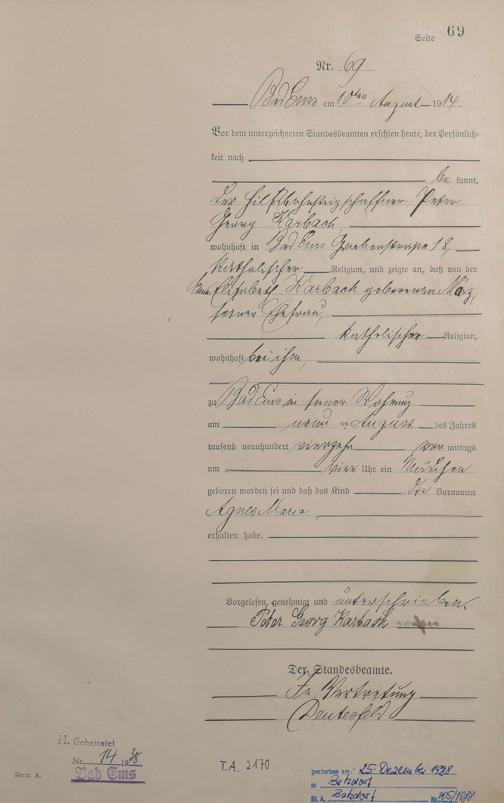 Seite 69
Nr. 69
Bad Ems am 10ten August 1914.
Vor dem unterzeichneten Standesbeamten erschien heute, der Persönlich-
keit nach
be kannt,
der Hilfsbahnsteigschaffner Peter
Georg Karbach,
wohnhaft in Bad Ems Grabenstrasse 18,
katholischer Religion, und zeigte an, daß von der
Elisabeth Karbach geborenen März,
seiner Ehefrau,
katholischer Religion,
wohnhaft bei ihm,
zu Bad Ems in seiner Wohnung
am neun ten August des Jahres
tausend neunhundert vierzehn vor mittags
um vier Uhr ein Mädchen
geboren worden sei und daß das Kind die Vornamen
Agnes Maria
erhalten habe.
Vorgelesen, genehmigt und unterschrieben.
Peter Georg Karbach
Der Standesbeamte.
In Vertretung
H. Geheiratet
Nr. 14 1938
Bad Ems
Form A.
T.A. 2170
gestorben am: 25. Dezember 1988
in Betzdorf
St. A. Betzdorf Nr. 105/1988